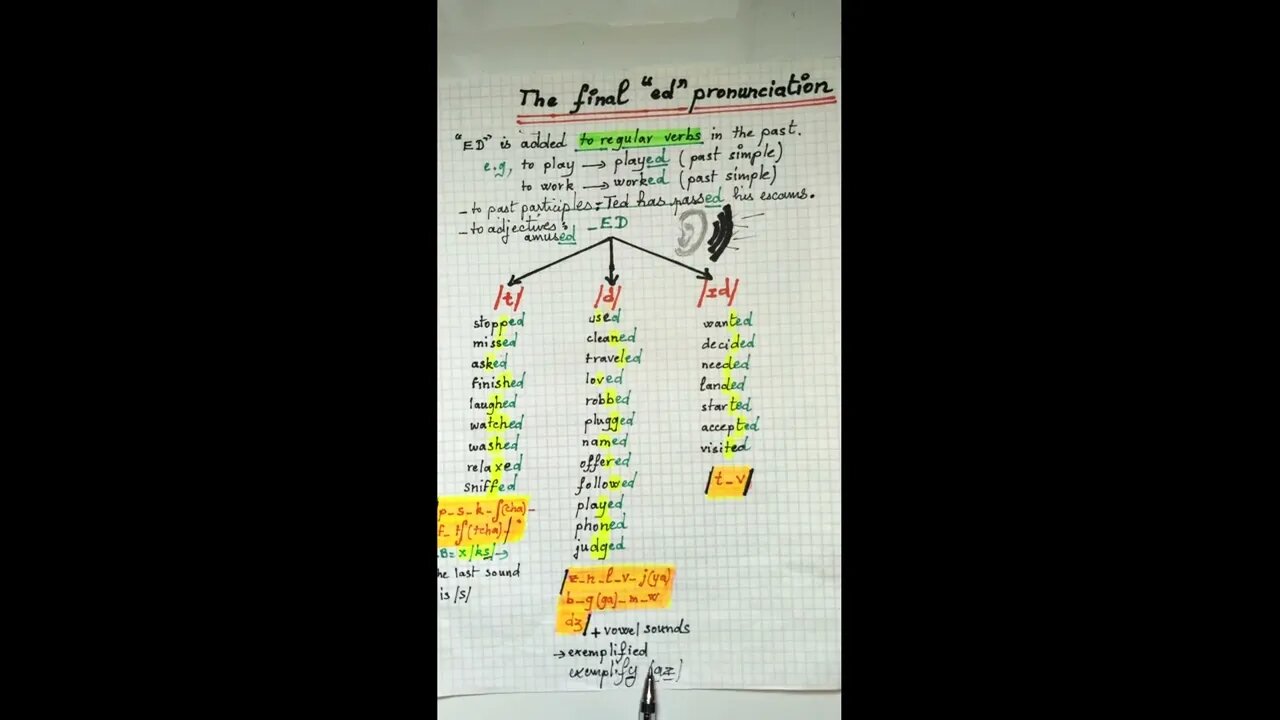 The final "ed" pronunciation
"ED" is added to regular verbs in the past.
e.g, to play → played (past simple)
to work → worked (past simple)
- to past participles: Ted has passed his escams.
- to adjectives:
amused
- ED
/t/
stopped
missed
asked
finished
laughed
watched
washed
relaxed
sniffed
p - s - k - ʃ(cha) -
f - tʃ(tcha) /
B= x /ks/ →
he last sound
is /s/
/d/
used
cleaned
traveled
loved
robbed
plugged
named
offered
followed
played
phoned
judged
/z - n - l - v - j(ya)
b - g(ga) - m - w
dʒ/ + vowel sounds
→ exemplified
exemplify
/ɪd/
wanted
decided
needed
landed
started
accepted
visited
/t - v/